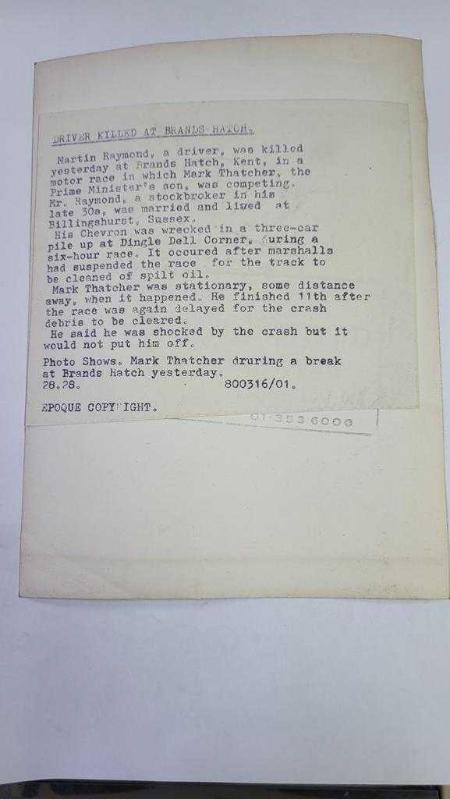 DRIVER KILLED AT BRANDS HATCH.
Martin Raymond, a driver, was killed
yesterday at Brands Hatch, Kent, in a
motor race in which Mark Thatcher, the
Prime Minister's son, was competing.
Mr. Raymond, a stockbroker in his
late 30s, was married and lived at
Billingshurst, Sussex.
His Chevron was wrecked in a three-car
pile up at Dingle Dell Corner, uring a
six-hour race. It occured after marshalls
had suspended the race for the track to
be cleaned of spilt oil.
Mark Thatcher was stationary, some distance
away, when it happened. He finished 11th after
the race was again delayed for the crash
debris to be cleared.
He said he was shocked by the crash but it
would not put him off.
Photo Shows. Mark Thatcher druring a break
at Brands Hatch yesterday.
28.28. 800316/01.
EPOQUE COPY'IGHT.
01-353 6000